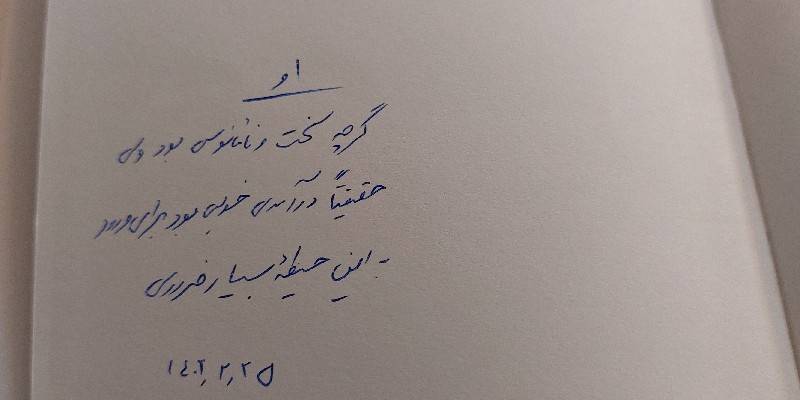 او
گرچه سخت و نامانوس بود ولی
حقیقتاً درآمدی خوبی بود برای ورود
به این حیطهٔ بسیار ضروری
۱۴۰۲٫۲٫۲۵